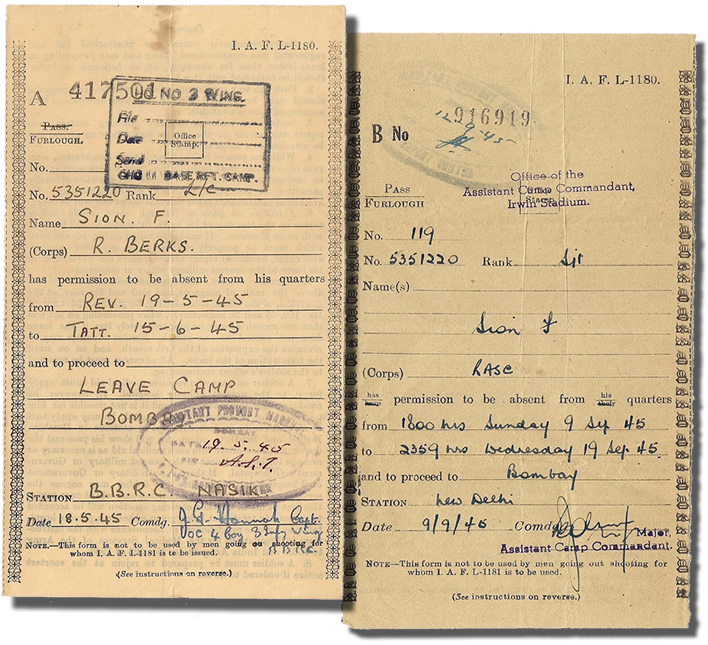 I. A. F. L-1180.
A 417501
O.C NO 3 WING.
File
Date
Serial
GHQ BASE RFT. CAMP.
Office
Stamp.
Pass.
FURLOUGH.
No.
No. 5351220 Rank L/C
Name SION. F.
(Corps) R. BERKS.
has permission to be absent from his quarters
from REV. 19-5-45
to TATT. 15-6-45
and to proceed to
LEAVE CAMP
BOMBAY
ASSISTANT PROVOST MARSHAL
BOMBAY
DATE 19.5.45
STATION B.B.R.C. NASIK
Date 18.5.45 Comdg. Capt.
NOTE.—This form is not to be used by men going out shooting for
whom I. A. F. L-1181 is to be issued.
(See instructions on reverse.)
I. A. F. L-1180.
B No 916919
12/9/45
Office of the
Assistant Camp Commandant,
Irwin Stadium.
Office
Stamp.
Pass
FURLOUGH
No. 119
No. 5351220 Rank Sjt
Name(s)
Sion F
(Corps) RASC
has permission to be absent from his quarters
from 1800 hrs Sunday 9 Sep 45
to 2359 hrs Wednesday 19 Sep 45
and to proceed to Bombay
STATION New Delhi
Date 9/9/45 Comdg. Major,
Assistant Camp Commandant.
NOTE—This form is not to be used by men going out shooting for
whom I. A. F. L-1181 is to be used.
(See instructions on reverse.)